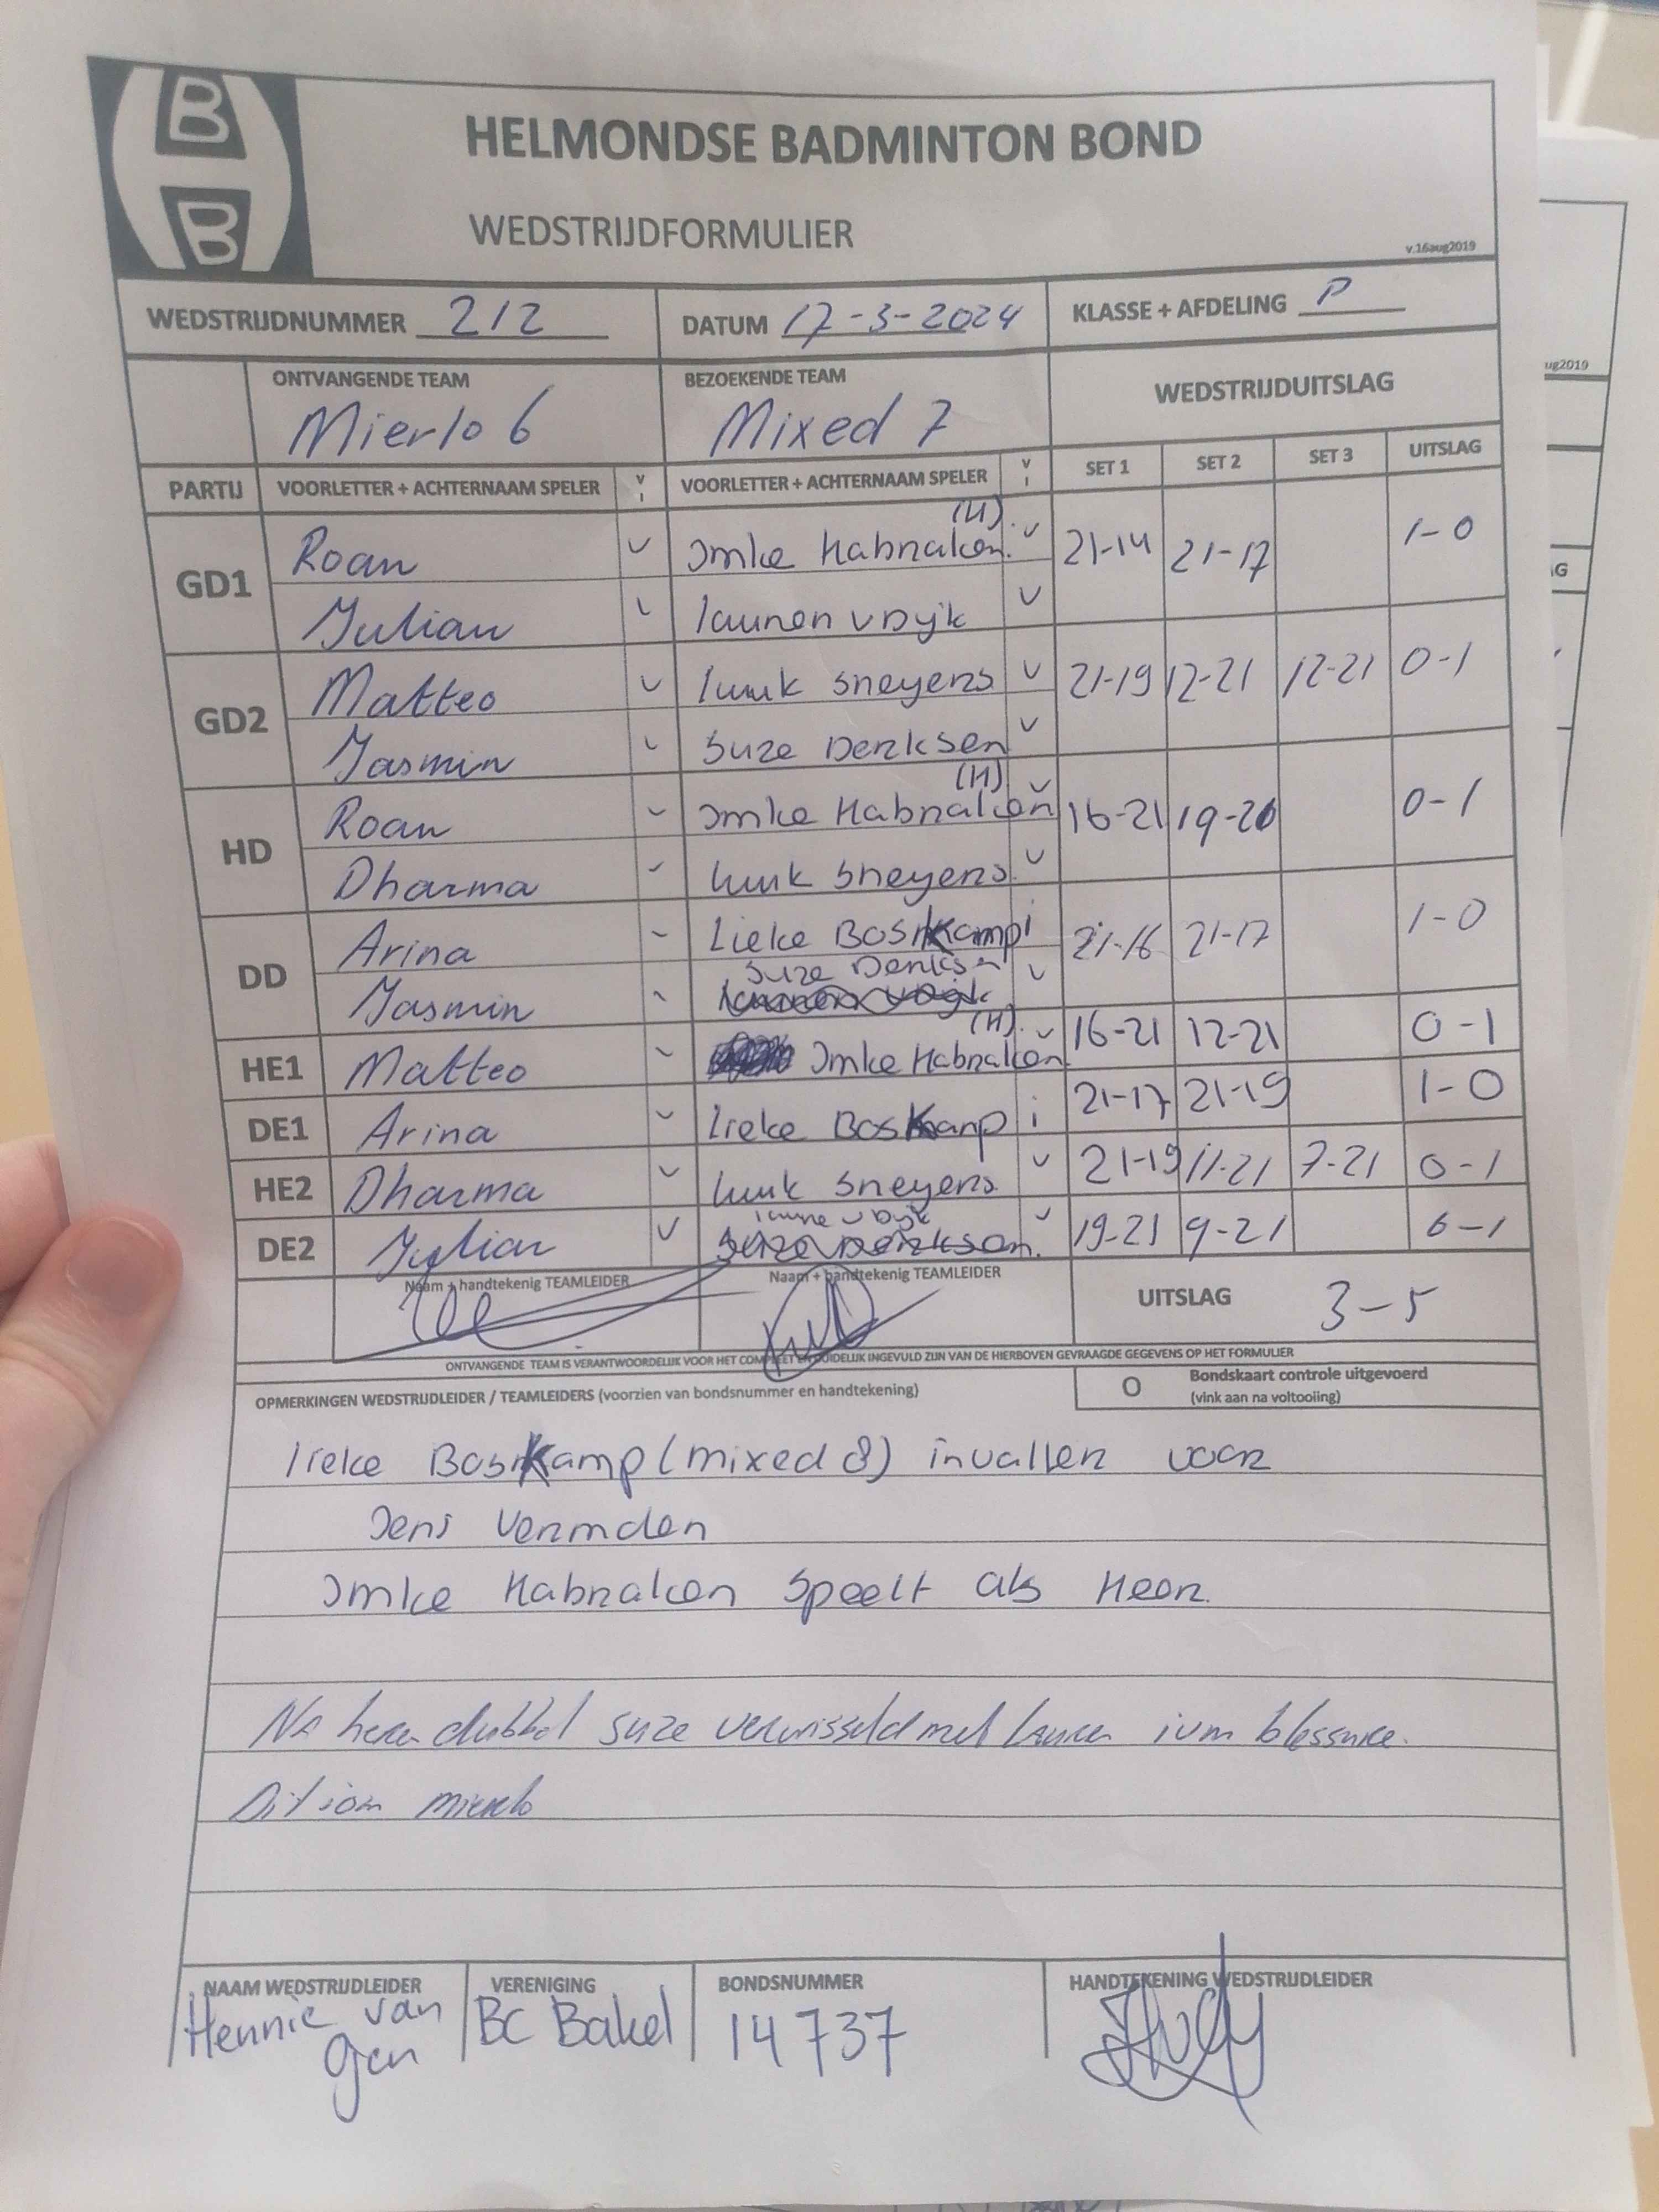 B
B
HELMONDSE BADMINTON BOND
WEDSTRIJDFORMULIER
v.16aug2019
WEDSTRIJDNUMMER 212 DATUM 17-3-2024 KLASSE + AFDELING P
ONTVANGENDE TEAM BEZOEKENDE TEAM WEDSTRIJDUITSLAG
Mierlo 6 Mixed 7
PARTIJ VOORLETTER + ACHTERNAAM SPELER V I VOORLETTER + ACHTERNAAM SPELER V I SET 1 SET 2 SET 3 UITSLAG
GD1 Roan v Imke Habraken (H). v 21-14 21-17 1-0
Julian v v Dijk v
GD2 Matteo v Luuk Sneyers v 21-19 12-21 12-21 0-1
Jasmin v Suze Derksen v
HD Roan v Imke Habraken (H) v 16-21 19-20 0-1
Dharma v Luuk Sneyers v
DD Arina v Lieke Boskamp i 21-16 21-17 1-0
Jasmin v Suze Derksen v
HE1 Matteo v Imke Habraken (H). v 16-21 12-21 0-1
DE1 Arina v Lieke Boskamp i 21-17 21-19 1-0
HE2 Dharma v Luuk Sneyers v 21-19 11-21 7-21 0-1
DE2 Julian v v Dijk v 19-21 9-21 0-1
Suze Derksen.
Naam + handtekenig TEAMLEIDER Naam + handtekenig TEAMLEIDER UITSLAG 3-5
ONTVANGENDE TEAM IS VERANTWOORDELIJK VOOR HET COMPLEET EN DUIDELIJK INGEVULD ZIJN VAN DE HIERBOVEN GEVRAAGDE GEGEVENS OP HET FORMULIER
OPMERKINGEN WEDSTRIJDLEIDER / TEAMLEIDERS (voorzien van bondsnummer en handtekening) O Bondskaart controle uitgevoerd
(vink aan na voltooiing)
Lieke Boskamp (mixed 8) invaller voor
Imke Habraken speelt als Heer.
Na heren dubbel suze verwisseld met Lauren ivm blessure.
mierlo
NAAM WEDSTRIJDLEIDER VERENIGING BONDSNUMMER HANDTEKENING WEDSTRIJDLEIDER
Hennie van BC Bakel 14737
ug2019
G